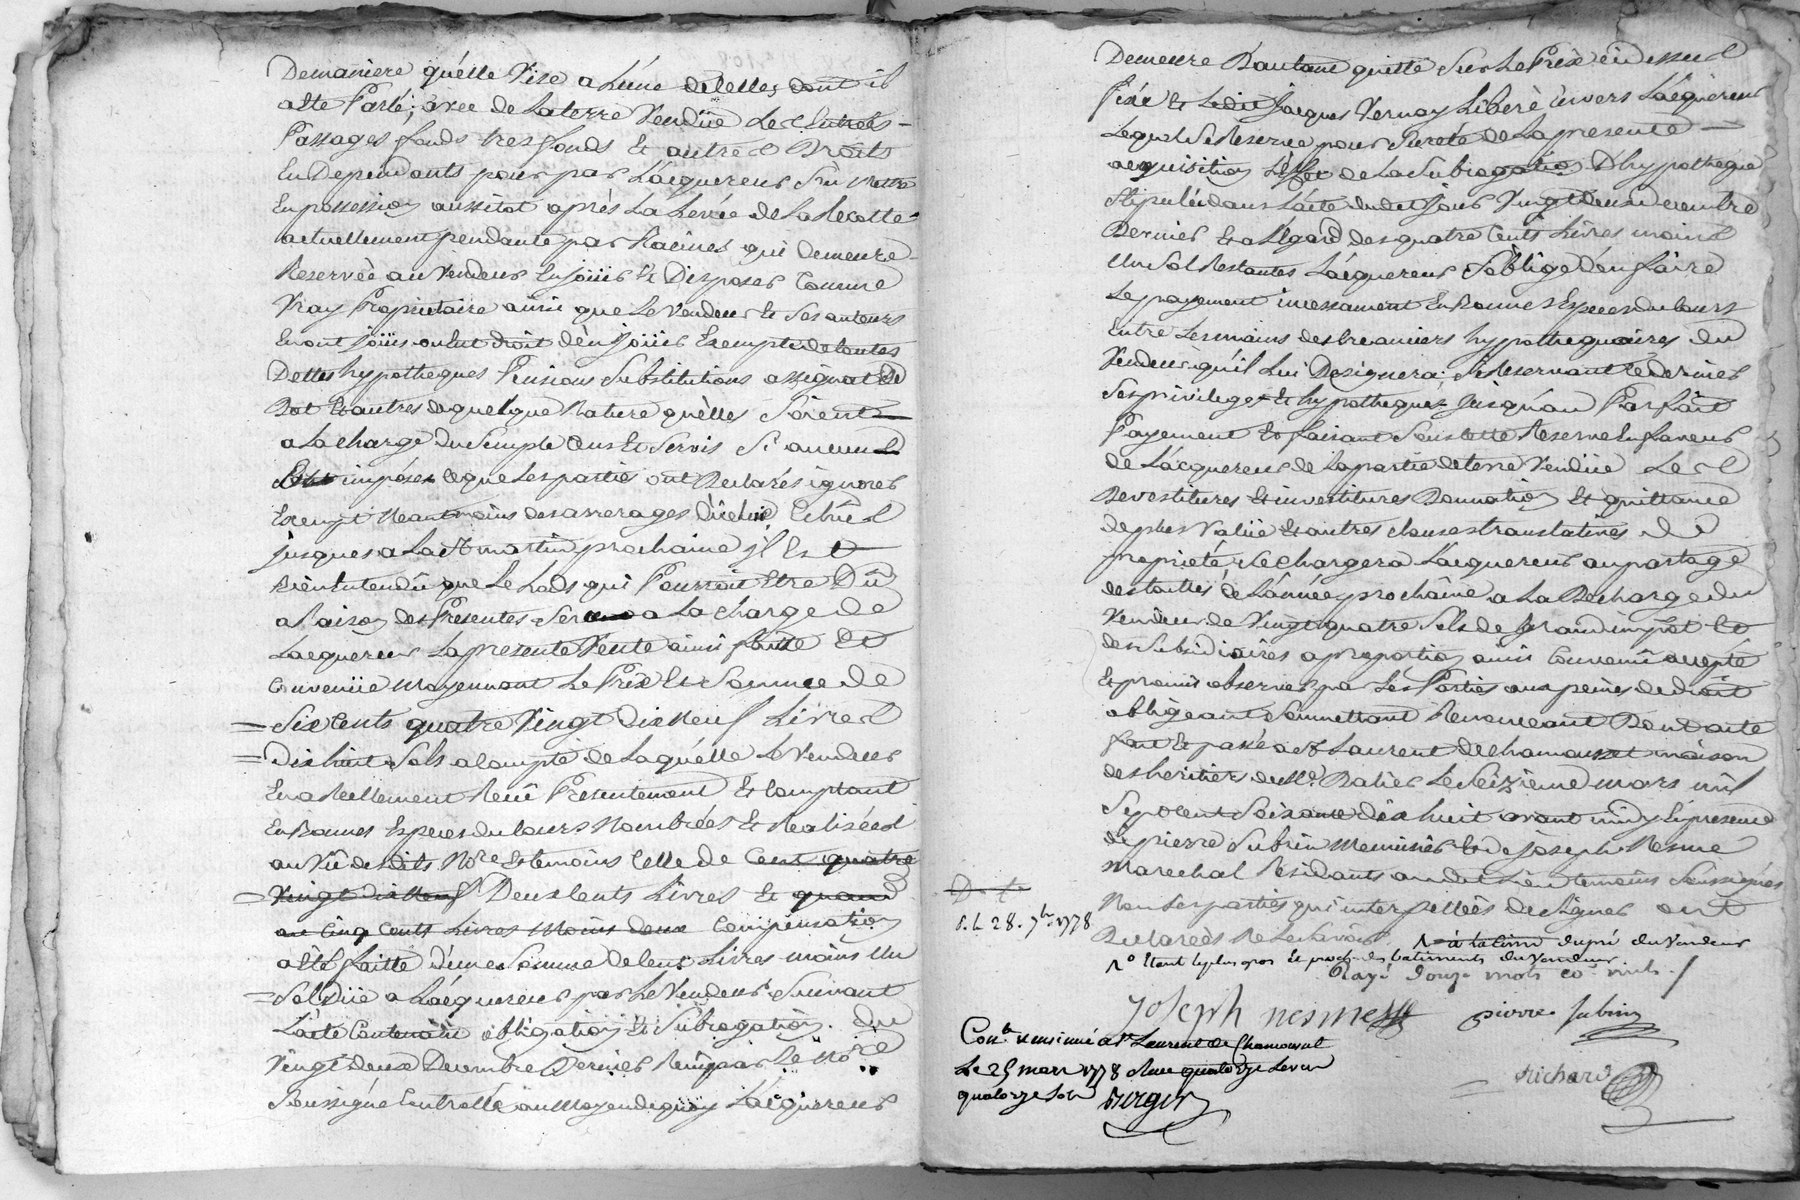 Demaniere quélle Vise a Lúne dicelles dont il
a été Parlé; avec de La terre Vendüe Les Entrées
Passages fonds tres fonds Et autres Droits
En Dependants pour par L'acquereur S'en Mettre
En possession aussitot après La Levée de La Recolte
actuellement pendante par Racines qui demeure
Reservée au Vendeur En joüir Et Disposer Comme
Vray Propriétaire ainsi que Le Vendeur Et Ses auteurs
En ont joüis ou Eut droit d'En joüir Exempte de toutes
Dettes hypotheques Pensions Substitutions assignat De
Dot Et autres de quelque Nature quélles Soient
a La charge du Simple Cens Et Servis Si aucuns
imposés Ce que Les parties ont Declarés ignorer
Exempt Neantmoins des arrerages d'iceluy Echûs
jusques a La St martin prochaine jl Est
Bien Entendû que Le Lods qui Pourroit Etre Dû
a Raison des Presentes Sera a La charge de
L'acquereur La presente Vente ainsi faitte Et
Convenüe Moyennant Le Prix Et Somme de
Six Cents quatre Vingt Dix Neuf Livres
Dix huit Sols a Compte de Laquélle Le Vendeur
En a Réellement Receû Présentement Et Comptant
En Bonnes Especes du Cours Nombrées Et Realisées
au Vû desdits Nore Et temoins Celle de Cent quatre
Vingt Dix Neuf Deux Cents Livres Et quand
au Cinq Cents Livres Moins deux Compensation
a Eté faitte d'une Somme de Cent Livres moins Un
Sol düe a L'acquereur par Le Vendeur Suivant
L'acte Contenant obligation Et Subrogation du
Vingt deux Decembre Dernier Reçû par Le Nore
Soussigné Controllé au Moyen de quoy L'acquereur
Demeure D'autant quitte Sur Le Prix ci dessus
fixé Et Ledit Jacques Vernay Liberé Envers L'acquereur
Lequel Se Reserve pour Sureté de La presente
acquisition L'Effet de La Subrogation D'hypotheque
Stipulée dans L'acte dudit jour Vingt deux decembre
Dernier Et a L'égard des quatre Cents Livres moins
Un Sol Restantes L'acquereur S'oblige d'En faire
Le payement incessament En Bonnes Especes du Cours
Entre Les mains des Creanciers hypothequaires du
Vendeur qu'il Lui Designera Se Reservant Ce dernier
Ses privileges Et hypotheques jusqu'au Parfait
Payement Et faisant Sous Cette Reserve En faveur
de L'acquereur de La partie de terre Vendüe Les
Devestitures Et investitures Donnation Et quittance
de plus Valüe Et autres clauses translatives De
proprieté Se chargera L'acquereur au partage
des tailles de L'année prochaine a La Decharge du
Vendeur de Vingt quatre Sols de grand impôt Et
des Subsidiaires a proportion ainsi Convenu accepté
Et promis observer par Les Parties aux peines de droit
obligeant Soumettant Renonceant Dont acte
fait Et passé a St Laurent de Chamousset maison
des heritiers du Sr Batier Le Seizieme mars mil
Sept cent Soixante dix huit avant midy En presence
de pierre Subrin Menuisier Et de joseph Nesme
Marechal Residants audit Lieu temoins Soussignés
Non Les parties qui interpellées de Signer ont
Declarées Ne Le Sçavoir à la Cime du pré du Vendeur
1º Etant le plus gros Et proche des batiments du Vendeur
Rayé douze mots co. nuls
D. C.
S. L. 28. 7bre 1778
Joseph nesme pierre subrin
Richard
Conlé et insinué a St Laurent de Chamousset
Le 25 mars 1778 Reçu quatorze Livres
quatorze Sols
Berger